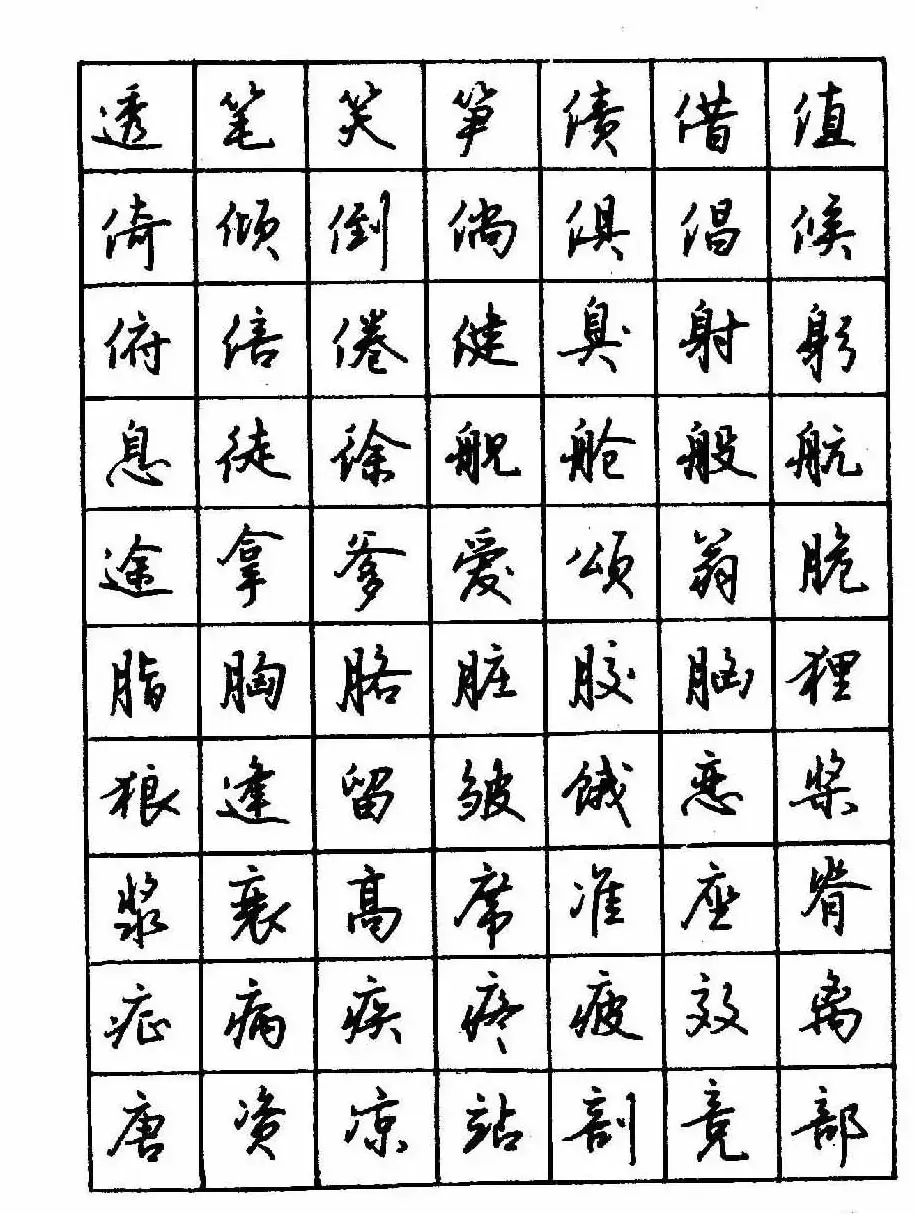 透笔笑笋债借值
倚倾倒倘俱倡候
俯倍倦健臭射躬
息徒徐舰舱般航
途拿爹爱颂翁脆
脂胸胳脏胶脑狸
狼逢留皱饿恋桨
浆衰高席准座脊
症病疾疼疲效离
唐资凉站剖竞部